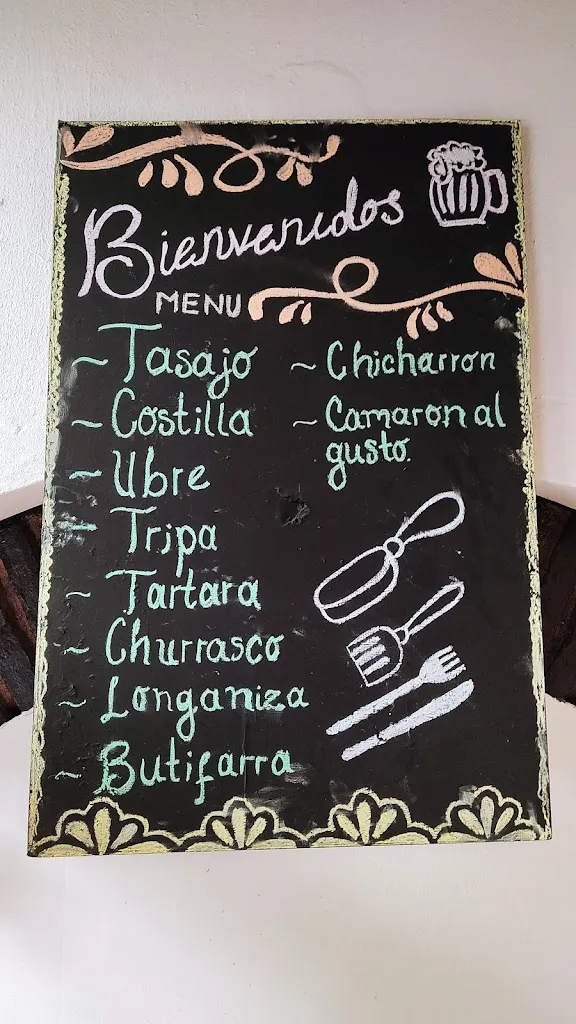 Bienvenidos
MENU
~ Tasajo
~ Costilla
~ Ubre
~ Tripa
~ Tartara
~ Churrasco
~ Longaniza
~ Butifarra
~ Chicharron
~ Camaron al
gusto.